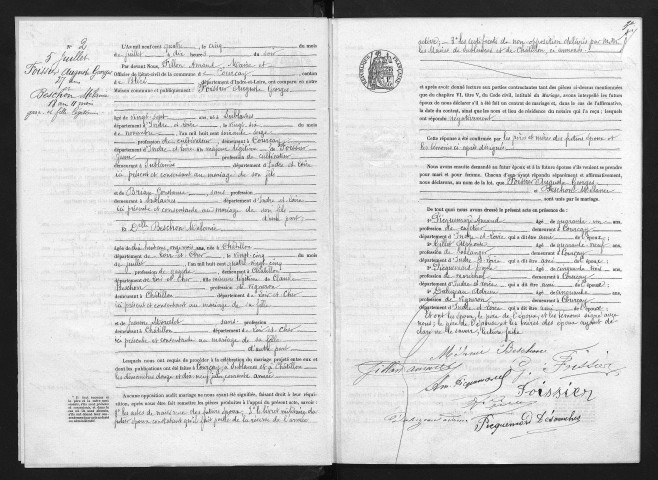 N° 2
5 Juillet
Foissier Auguste Georges
27 ans
Beschon Mélanie
18 ans 11 mois
L'An mil neuf cent quatre, le cinq du mois
de juillet à dix heures du soir
Par devant Nous, Pillon Amand, Maire et
Officier de l'état-civil de la commune de Courçay, canton
de Bléré, département d'Indre-et-Loire, ont comparu en notre
Maison commune et publiquement: Foissier Auguste Georges
Agé de vingt sept ans, né à Sublaines
département d'Indre et Loire le vingt six du mois
de novembre de l'an mil huit cent soixante seize
profession de cultivateur demeurant à Courçay
département d'Indre et Loire fils majeur légitime de Foissier
profession de cultivateur
demeurant à Sublaines département d'Indre et Loire
ici présent et consentant au mariage de son fils
et de Briau Constance sans profession
demeurant à Sublaines département d'Indre et Loire
ici présente et consentante au mariage de son fils
d'une part
Et Delle Beschon Mélanie
Agée de dix huit ans, onze mois, née à Châtillon
département de Loir et Cher le vingt cinq du mois
de juillet de l'an mil huit cent quatre vingt cinq
demeurant à Châtillon
département de Loir et Cher fille mineure légitime de
Beschon profession de vigneron
demeurant à Châtillon département de Loir et Cher
ici présent et consentant au mariage de sa fille
et de sans profession
demeurant à Châtillon département de Loir et Cher
ici présente et consentante au mariage de sa fille
d'autre part
Lesquels nous ont requis de procéder à la célébration du mariage projeté entre eux et
dont les publications ont été faites à Courçay, à Sublaines et à Châtillon
les dimanches douze et dix neuf juin courante année
Aucune opposition audit mariage ne nous ayant été signifiée, faisant droit à leur réqui-
sition, après nous être fait remettre les pièces produites à l'appui du présent acte, savoir:
1° les actes de naissance des futurs époux; 2° le livret militaire du
futur époux constatant qu'il fait partie de la réserve de l'armée
active; 3° les certificats de non opposition délivrés par Messrs
les Maires de Sublaines et de Châtillon, ci annexés
et après avoir donné lecture aux parties contractantes tant des pièces ci-dessus mentionnées
que du chapitre VI, titre V, du Code civil, intitulé du Mariage, avons interpellé les futurs
époux de nous déclarer s'il a été fait un contrat de mariage et, dans le cas de l'affirmative,
la date du contrat, ainsi que les nom et lieu de résidence du notaire qui l'a reçu; lesquels
ont répondu négativement
Cette réponse a été confirmée par les pères et mères des futurs époux et
les témoins ci après désignés
Nous avons ensuite demandé au futur époux et à la future épouse s'ils veulent se prendre
pour mari et pour femme. Chacun d'eux ayant répondu séparément et affirmativement,
nous déclarons, au nom de la loi, que Foissier Auguste Georges
et Beschon Mélanie
sont unis par le mariage.
De tout quoi nous avons dressé le présent acte en présence de:
1° Picquemard Amand Agé de quarante un ans
profession de demeurant à Courçay
département d'Indre et Loire qui a dit être ami de l'époux;
2° Agé de quarante neuf ans
profession de boulanger demeurant à Courçay
département d'Indre et Loire qui a dit être ami de l'époux;
3° Agé de cinquante trois ans
profession de maréchal demeurant à Courçay
département d'Indre et Loire qui a dit être ami de l'épouse;
4° Agé de cinquante ans
profession de vigneron demeurant à Courçay
département d'Indre et Loire qui a dit être ami de l'épouse.
Et ont les époux, le père de l'époux et les témoins signé avec
nous; la mère de l'époux et les père et mère de l'épouse ayant dé-
claré ne le savoir, lecture faite
Mélanie Beschon
G. Foissier
Foissier
Am Picquemard
Picquemard Desouches